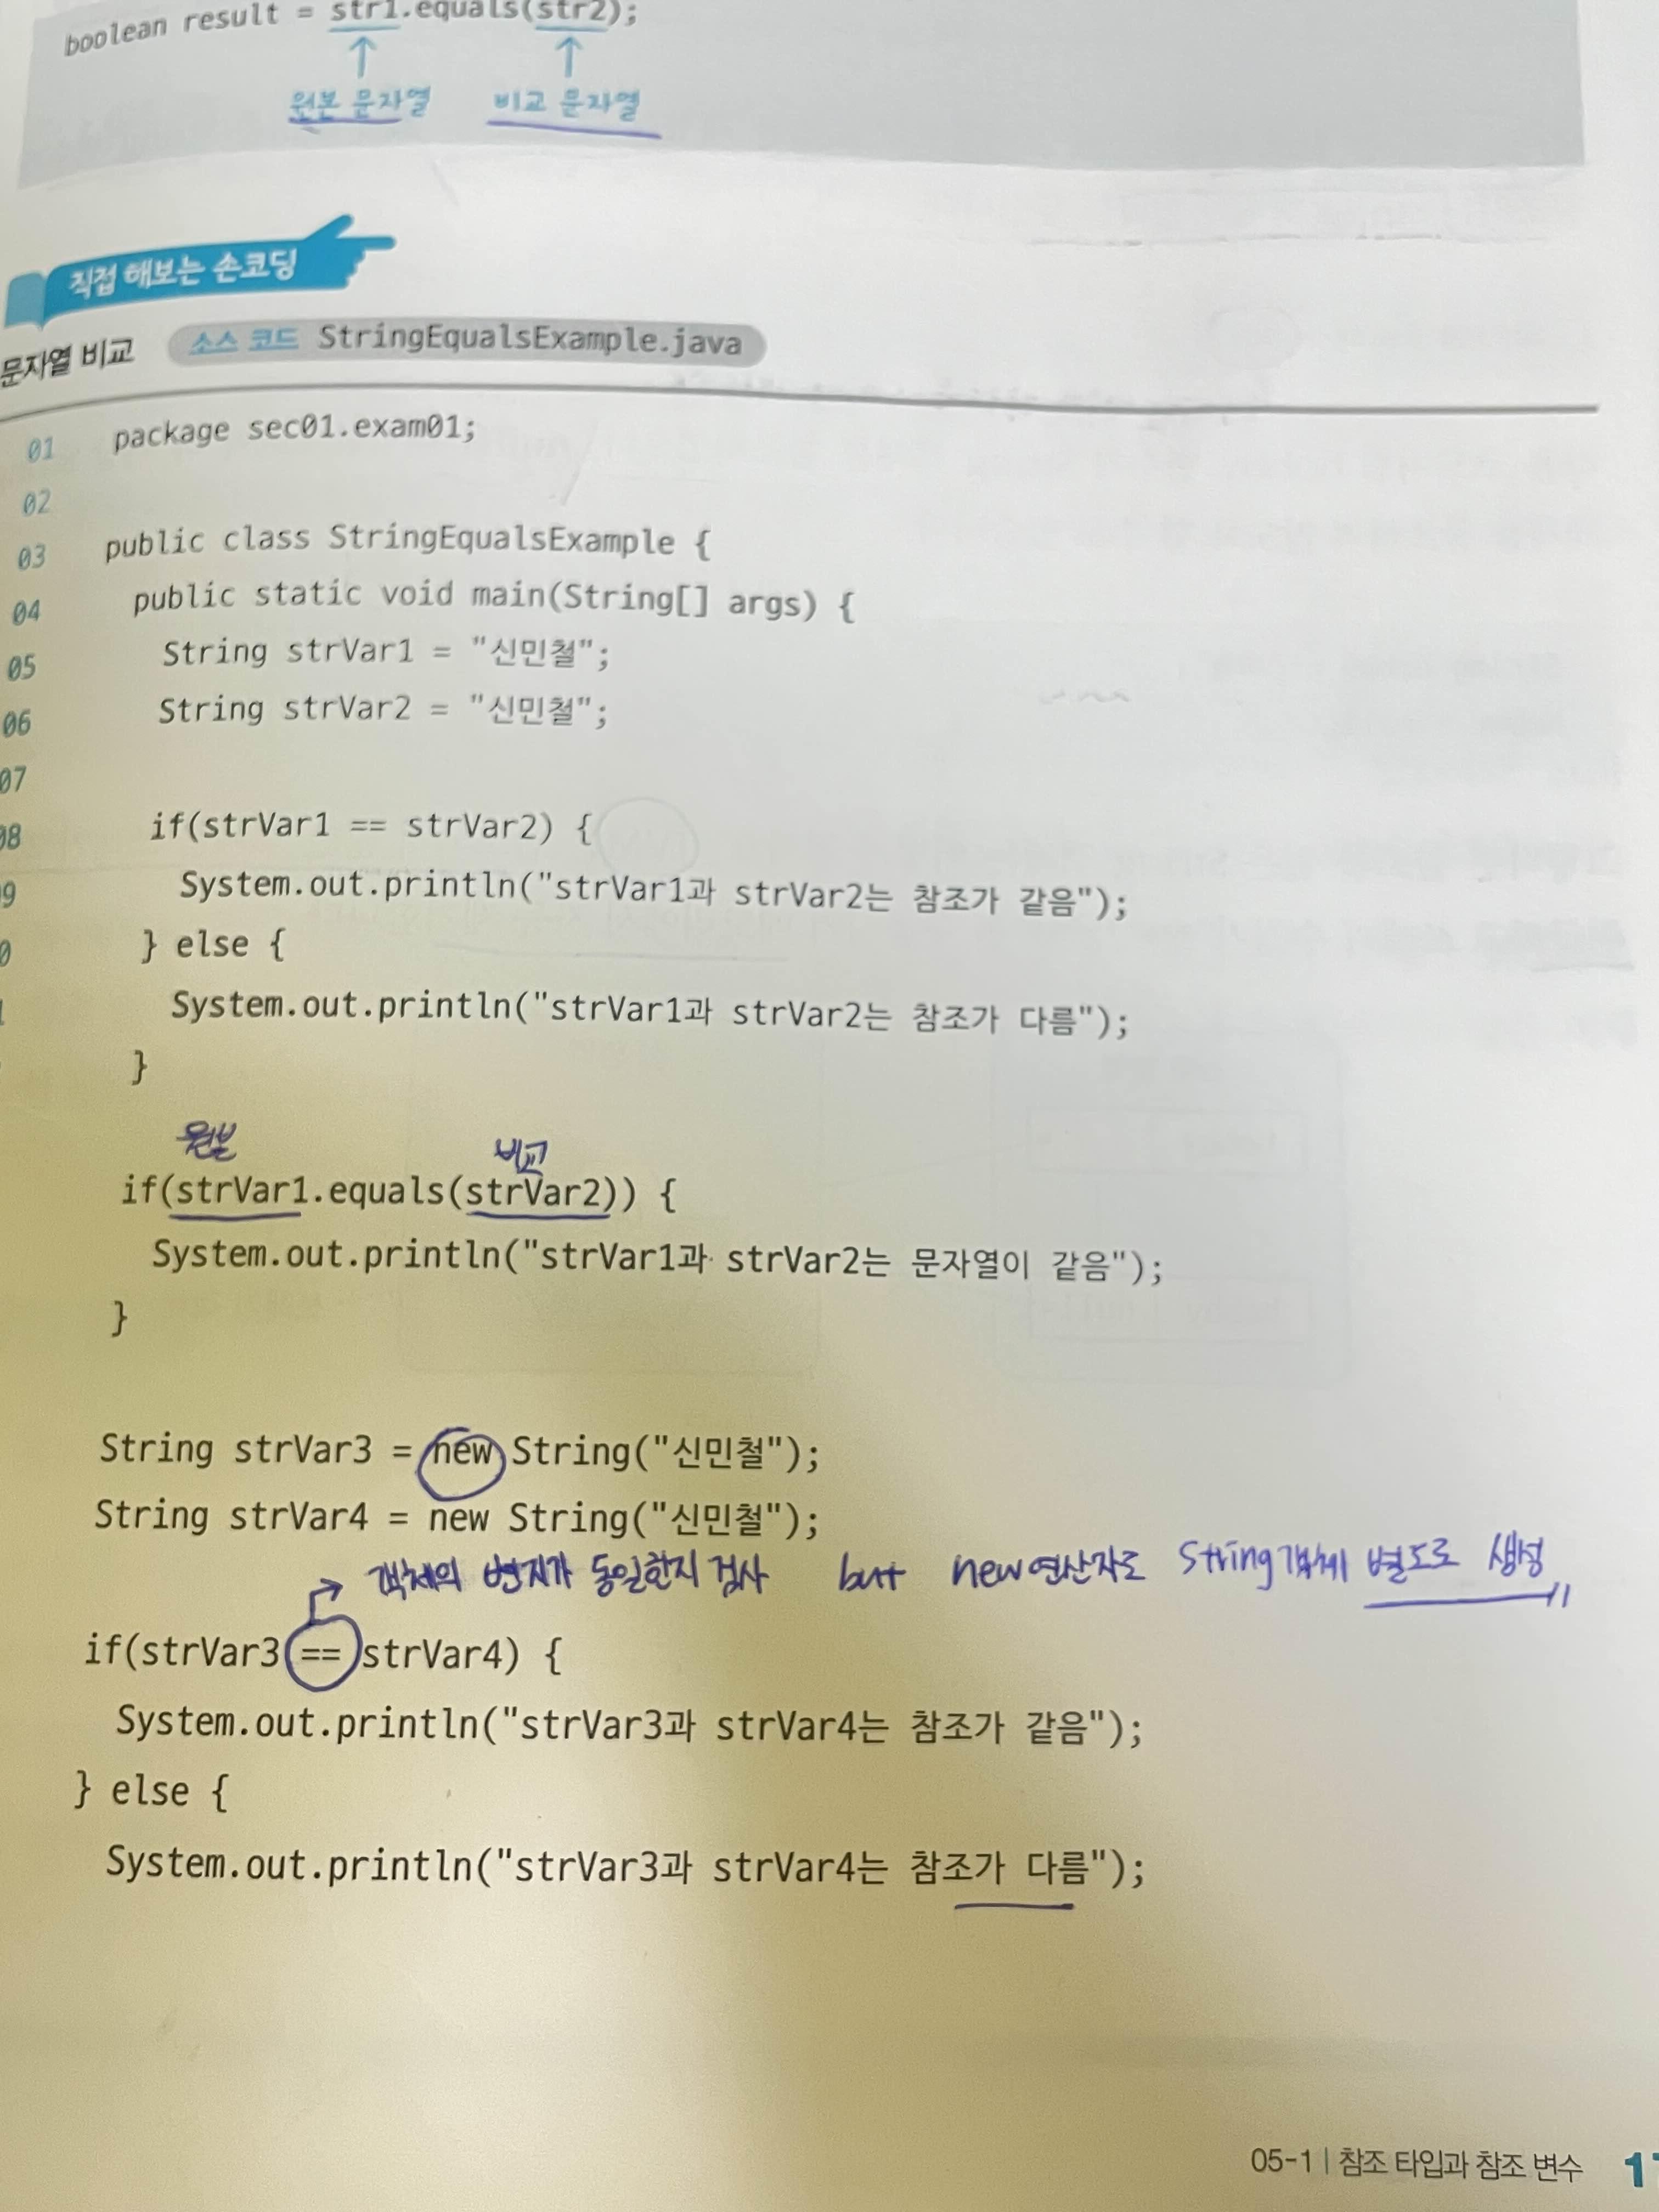 boolean result = str1.equals(str2);
원본 문자열 비교 문자열
직접 해보는 손코딩
문자열 비교 소스 코드 StringEqualsExample.java
01 package sec01.exam01;
02
03 public class StringEqualsExample {
04 public static void main(String[] args) {
05 String strVar1 = "신민철";
06 String strVar2 = "신민철";
07
08 if(strVar1 == strVar2) {
9 System.out.println("strVar1과 strVar2는 참조가 같음");
0 } else {
System.out.println("strVar1과 strVar2는 참조가 다름");
}
원본 비교
if(strVar1.equals(strVar2)) {
System.out.println("strVar1과 strVar2는 문자열이 같음");
}
String strVar3 = new String("신민철");
String strVar4 = new String("신민철");
객체의 번지가 동일한지 검사 but new연산자로 String객체 별도로 생성
if(strVar3 == strVar4) {
System.out.println("strVar3과 strVar4는 참조가 같음");
} else {
System.out.println("strVar3과 strVar4는 참조가 다름");
05-1 | 참조 타입과 참조 변수